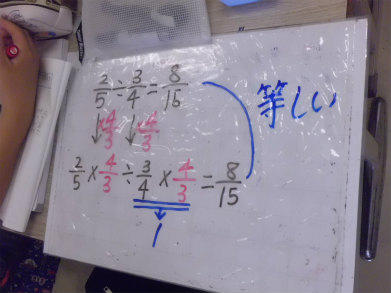 2/5 ÷ 3/4 = 8/15 等しい
↓×4/3 ↓×4/3
2/5 × 4/3 ÷ 3/4 × 4/3 = 8/15
↓
1